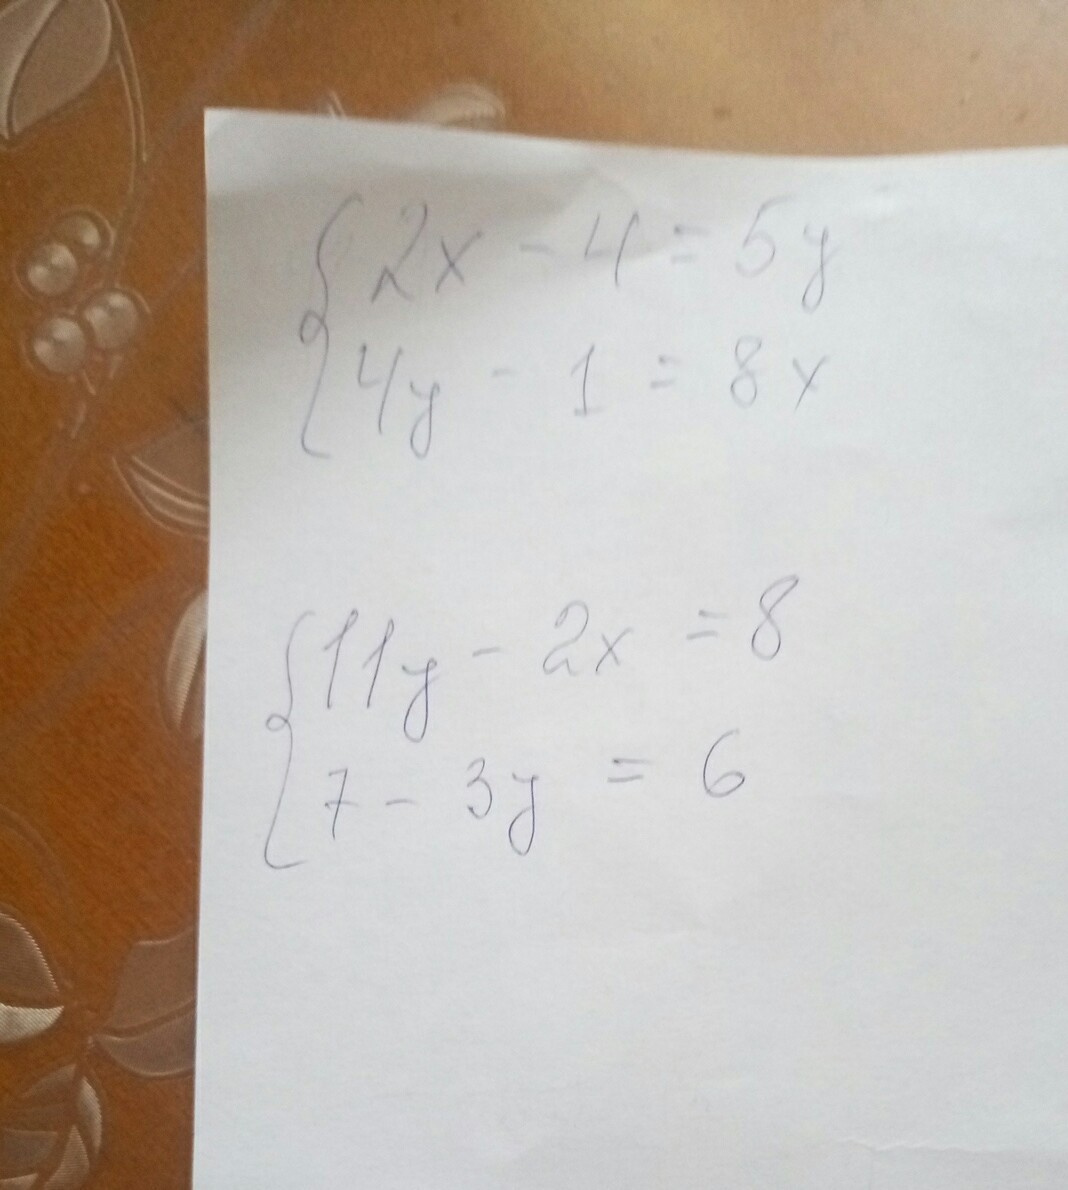 {2x - 4 = 5y
4y - 1 = 8x
{11y - 2x = 8
7 - 3y = 6